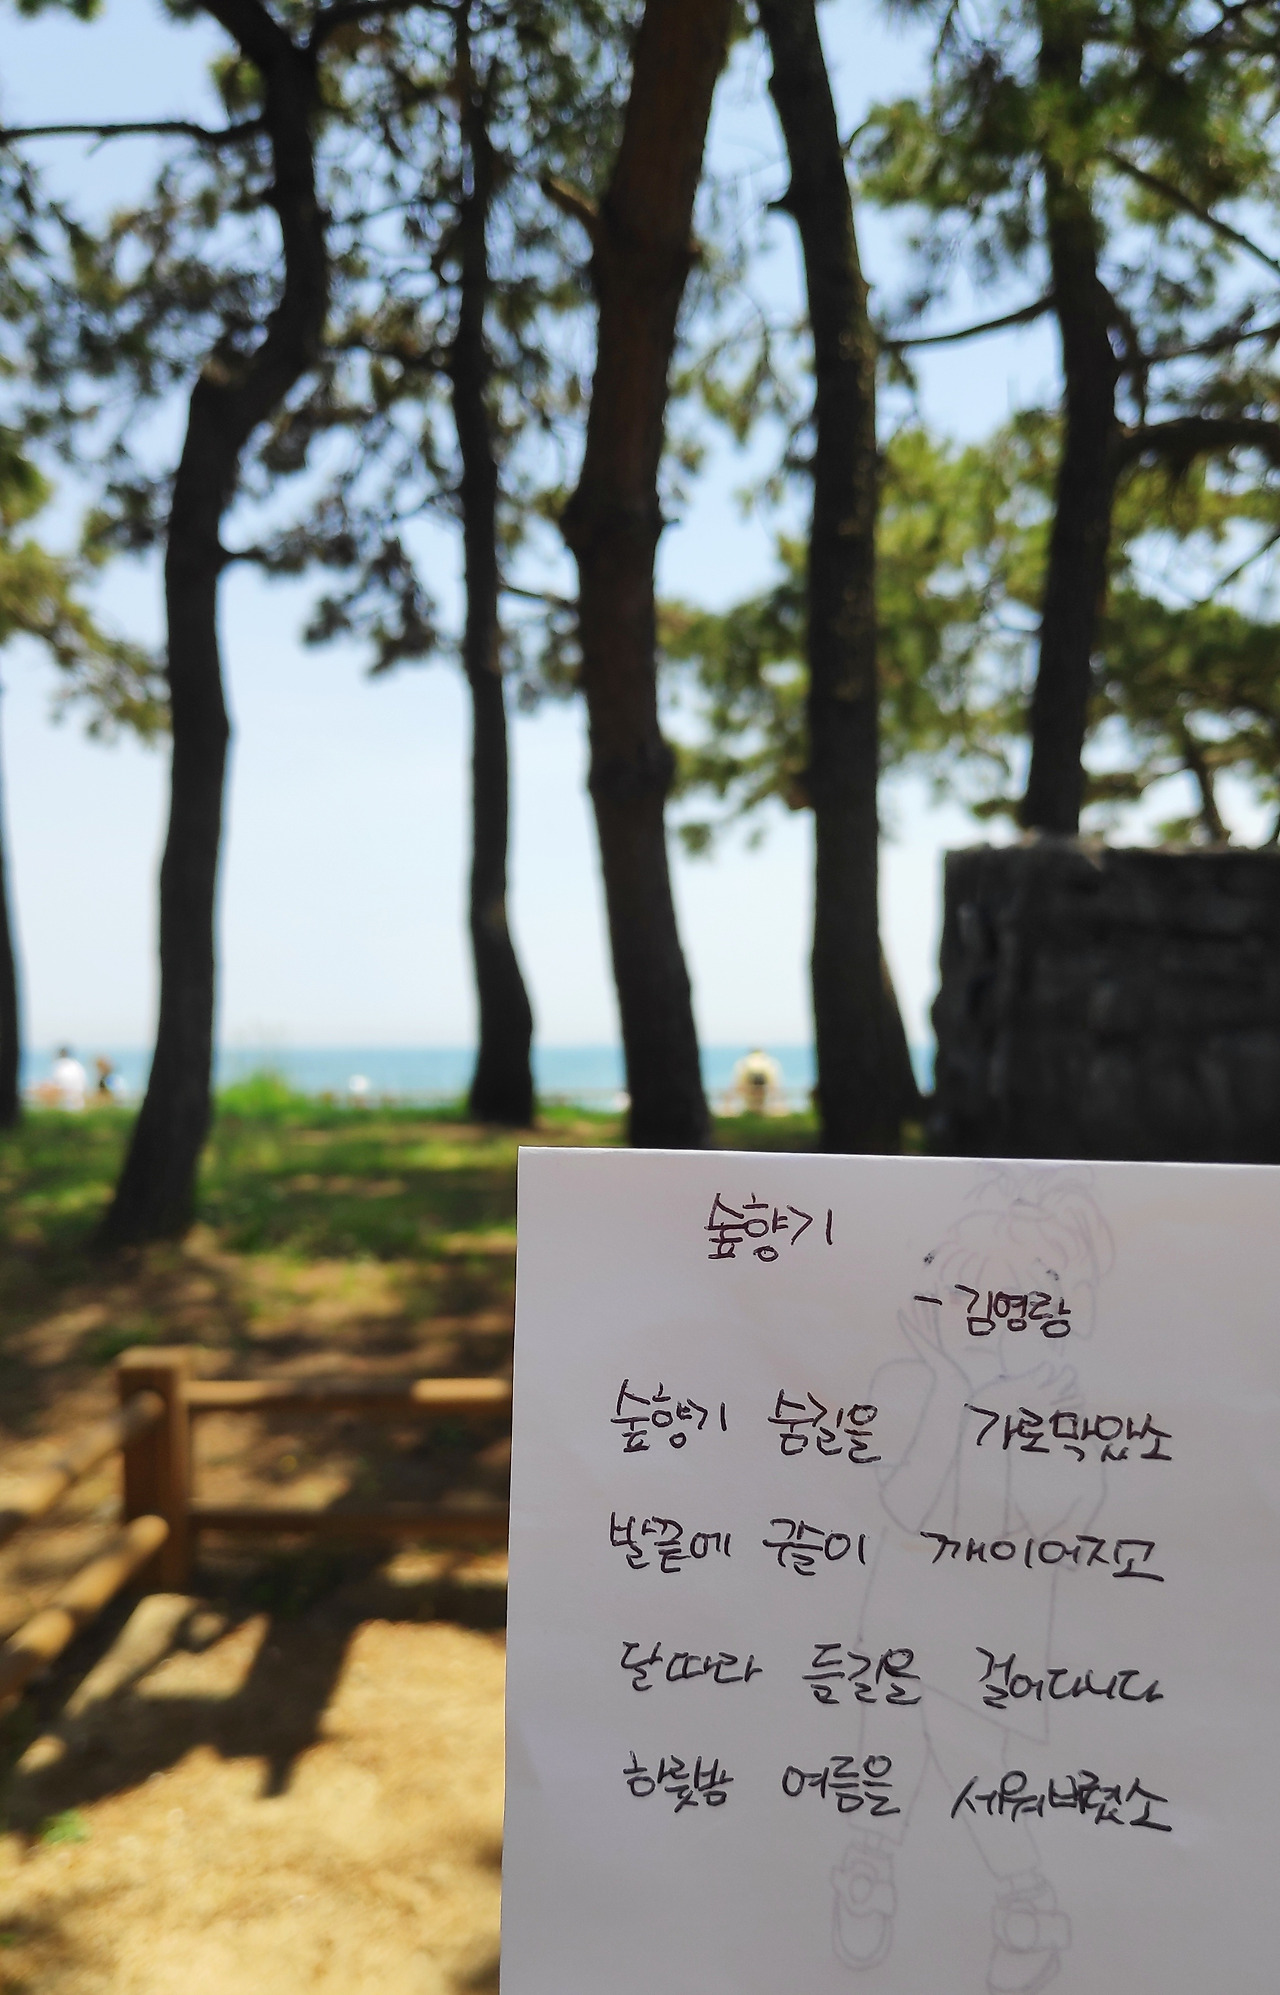 숲향기
- 김영랑
숲향기 숨길을 가로막았소
발끝에 구슬이 깨이어지고
달따라 들길을 걸어다니다
하룻밤 여름을 세워버렸소